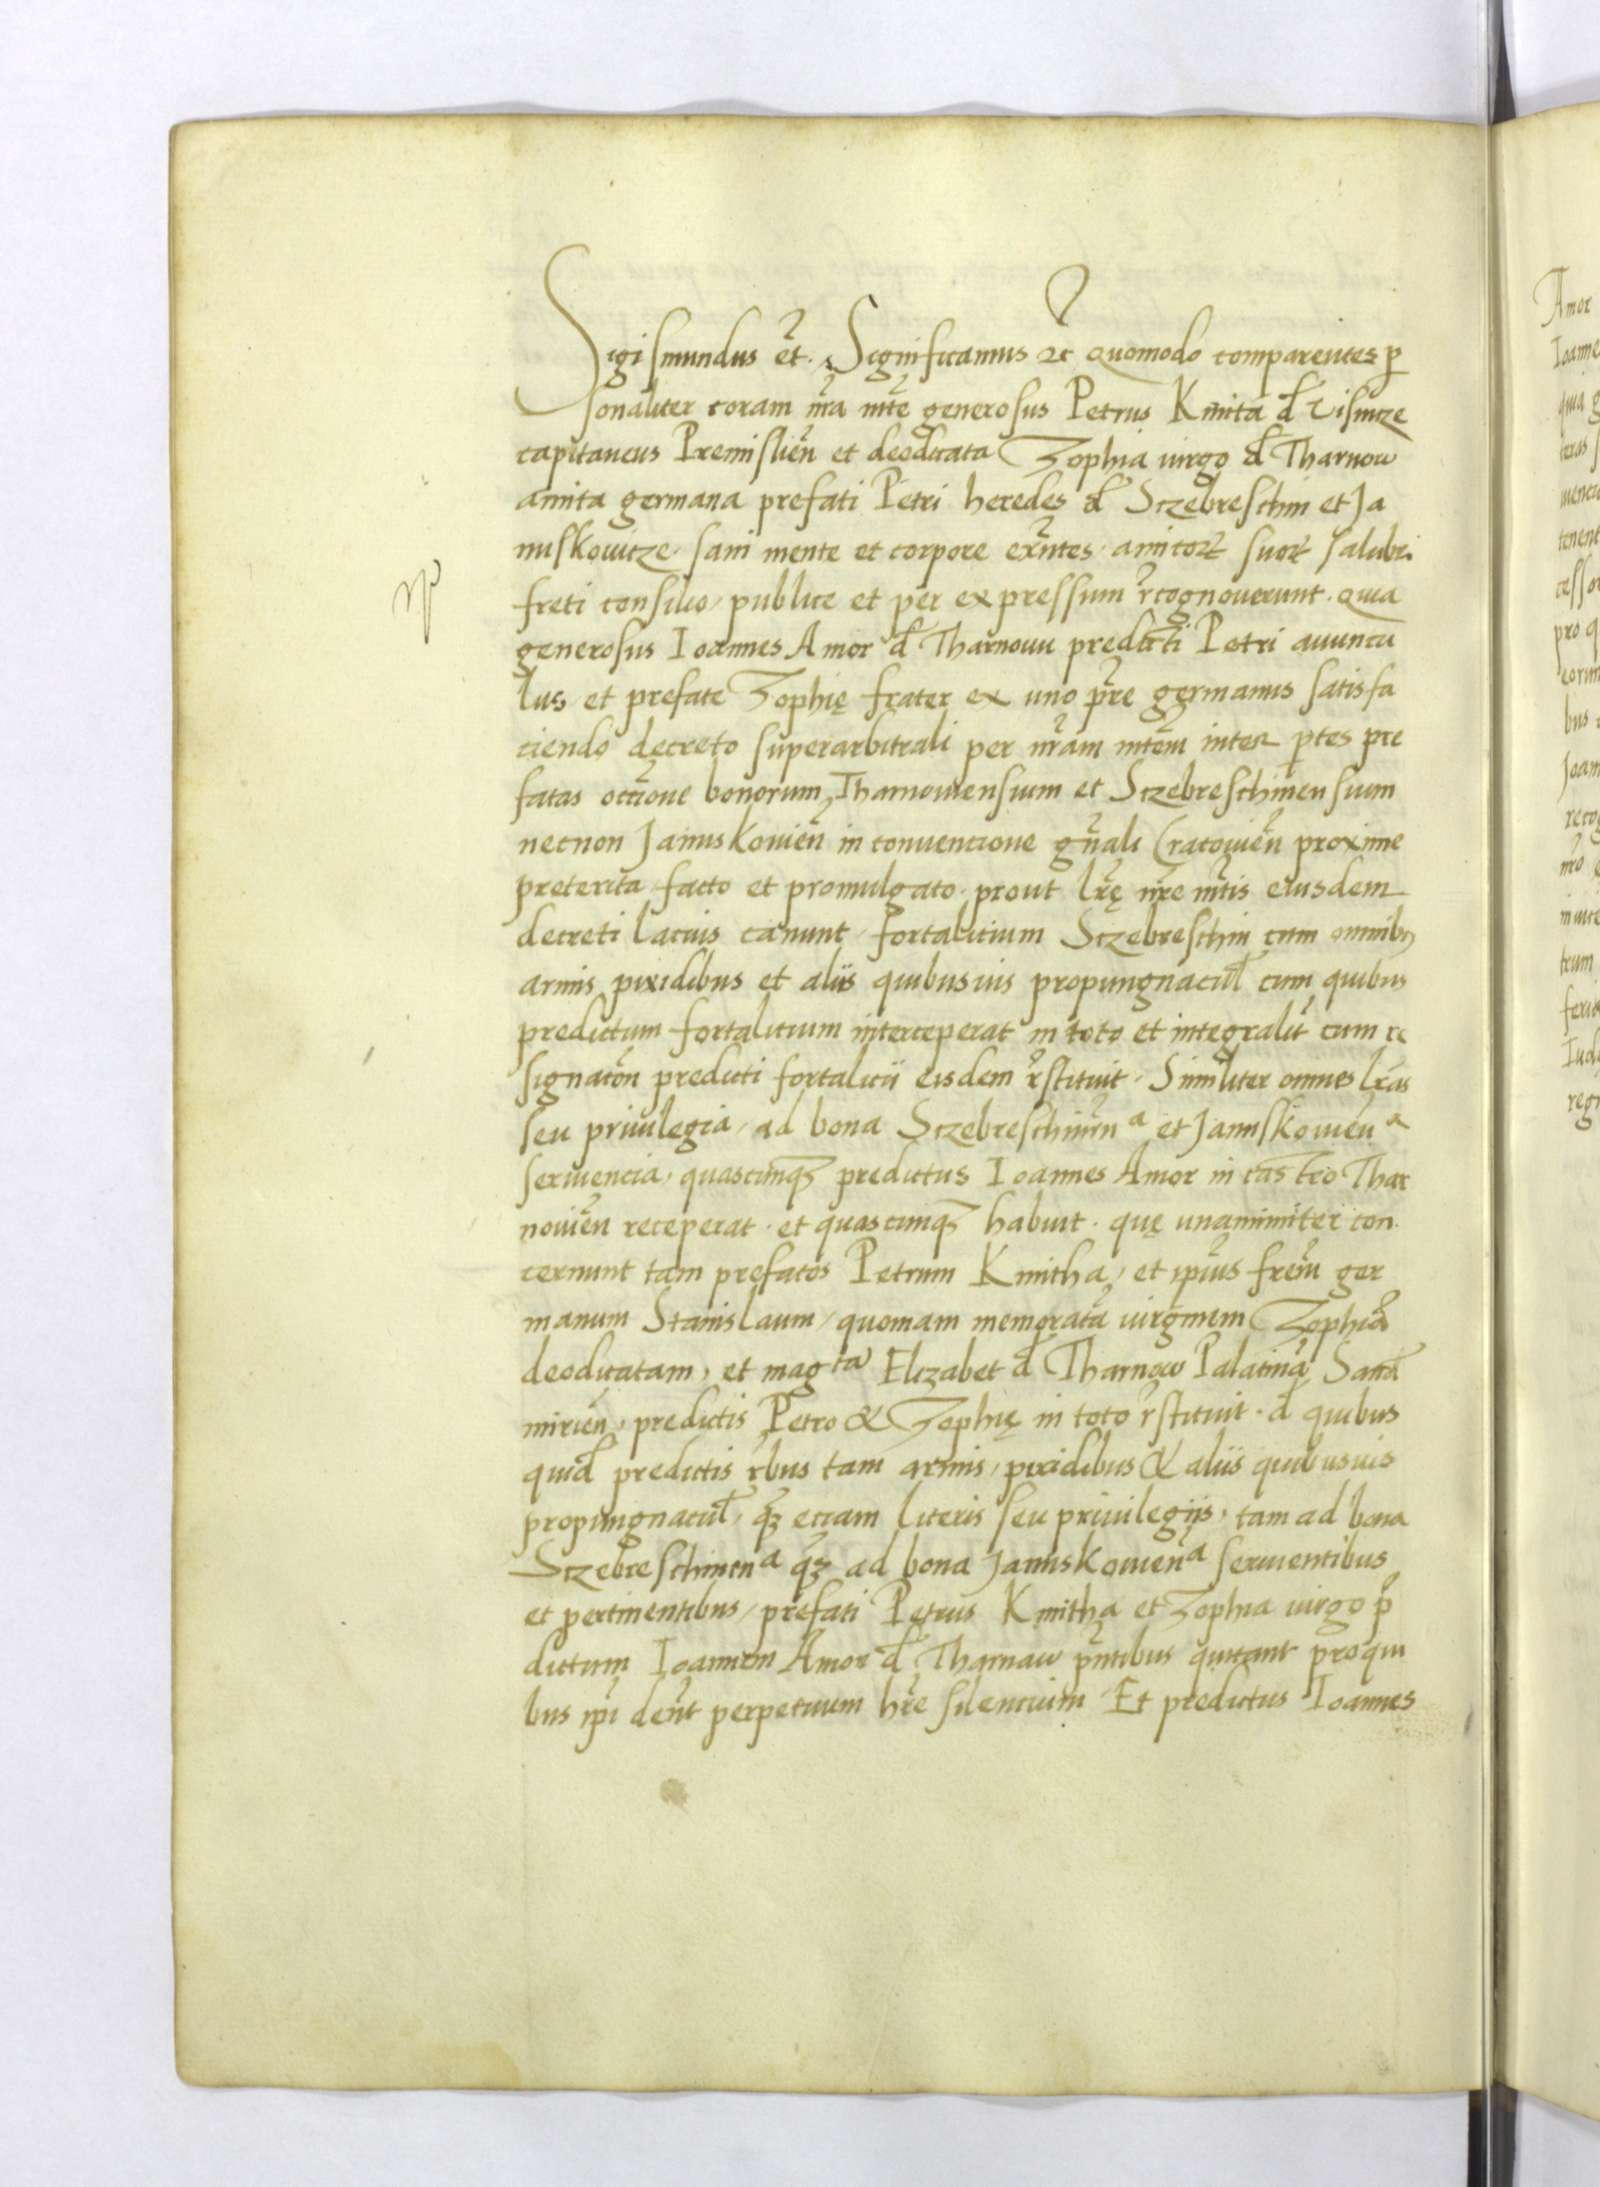 Sigismundus et̃. Significamus ⁊c Quomodo comparentes ꝑ
sonaliter coram nr̃a mte generosus Petrus Kmita d̃ Visnicze
capitaneus Premislien̄ et deodicata Zophia uirgo d̃ Tharnow
amita germana prefati Petri heredes d̃ Sczebreschin et Ja
nuskowicze, sani mente et corpore exn̄tes, amicoꝝ suoꝝ salubri
freti consilio, publice et per expressum rcognouerunt. Quia
generosus Ioannes Amor d̃ Tharnouu predicti Petri auuncu
lus, et prefate Zophię frater ex uno pr̃e germanus satisfa
ciendo decreto superarbitrali per nr̃am mtem inter ꝑtes pre
fatas occõne bonorum Tharnowiensium et Sczebreschinensium
necnon Januskouien̄ in conuencione gn̄ali Cracouien̄ proxime
preterita facto et promulgato, prout lrę nr̃e mtis eiusdem
decreti lacius canunt, fortalitium Sczebreschin cum omnibꝫ
armis, pixidibus et aliis quibusuis propungnacul̃ cum quibus
predictum fortalitium interceperat in toto et integralit̃ cum re
signacõn predicti fortalicii eisdem rstituit. Similiter omnes lr̃as
seu priuilegia, ad bona Sczebreschinen̄ᵃ et Januskouien̄ᵃ
seruiencia, quascunqꝫ predictus Ioannes Amor in castro Thar
nouien̄ receperat, et quascunqꝫ habuit, quę unanimiter con
cernunt tam prefatos Petrum Kmitha, et ipĩus frem̄ ger
manum Stanislaum, quoniam memoratã uirginem Zophiã
deodicatam, et magᵗᵃ Elizabet d̃ Tharnow Palatinã Sand̃
mirien̄, predictis Petro & Zophię in toto rstituit. d̃ quibus
quid̃ predictis rbus tam armis, pixidibus & aliis quibusuis
propungnacul̃, qꝫ eciam literis seu priuilegijs, tam ad bona
Sczebreschinenᵃ qꝫ ad bona Januskouienᵃ seruientibus
et pertinentibus, prefati Petrus Kmitha et Zophia uirgo p̃
dictum Ioannem Amor d̃ Tharnaw pn̄tibus quitant pro qui
bus ip̃i den̄t perpetuum hr̃e silencium. Et predictus Ioannes